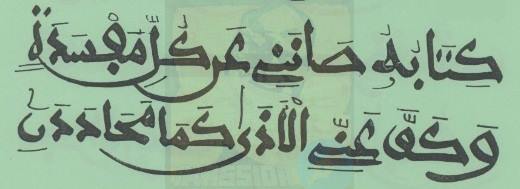 كِتَابُهُ صَانَنِي عَن كُلِّ مَفْسَدَةٍ
وَكَفَّ عَنِّي الْأَذَى كَمَا مَحَا دَدَنِ